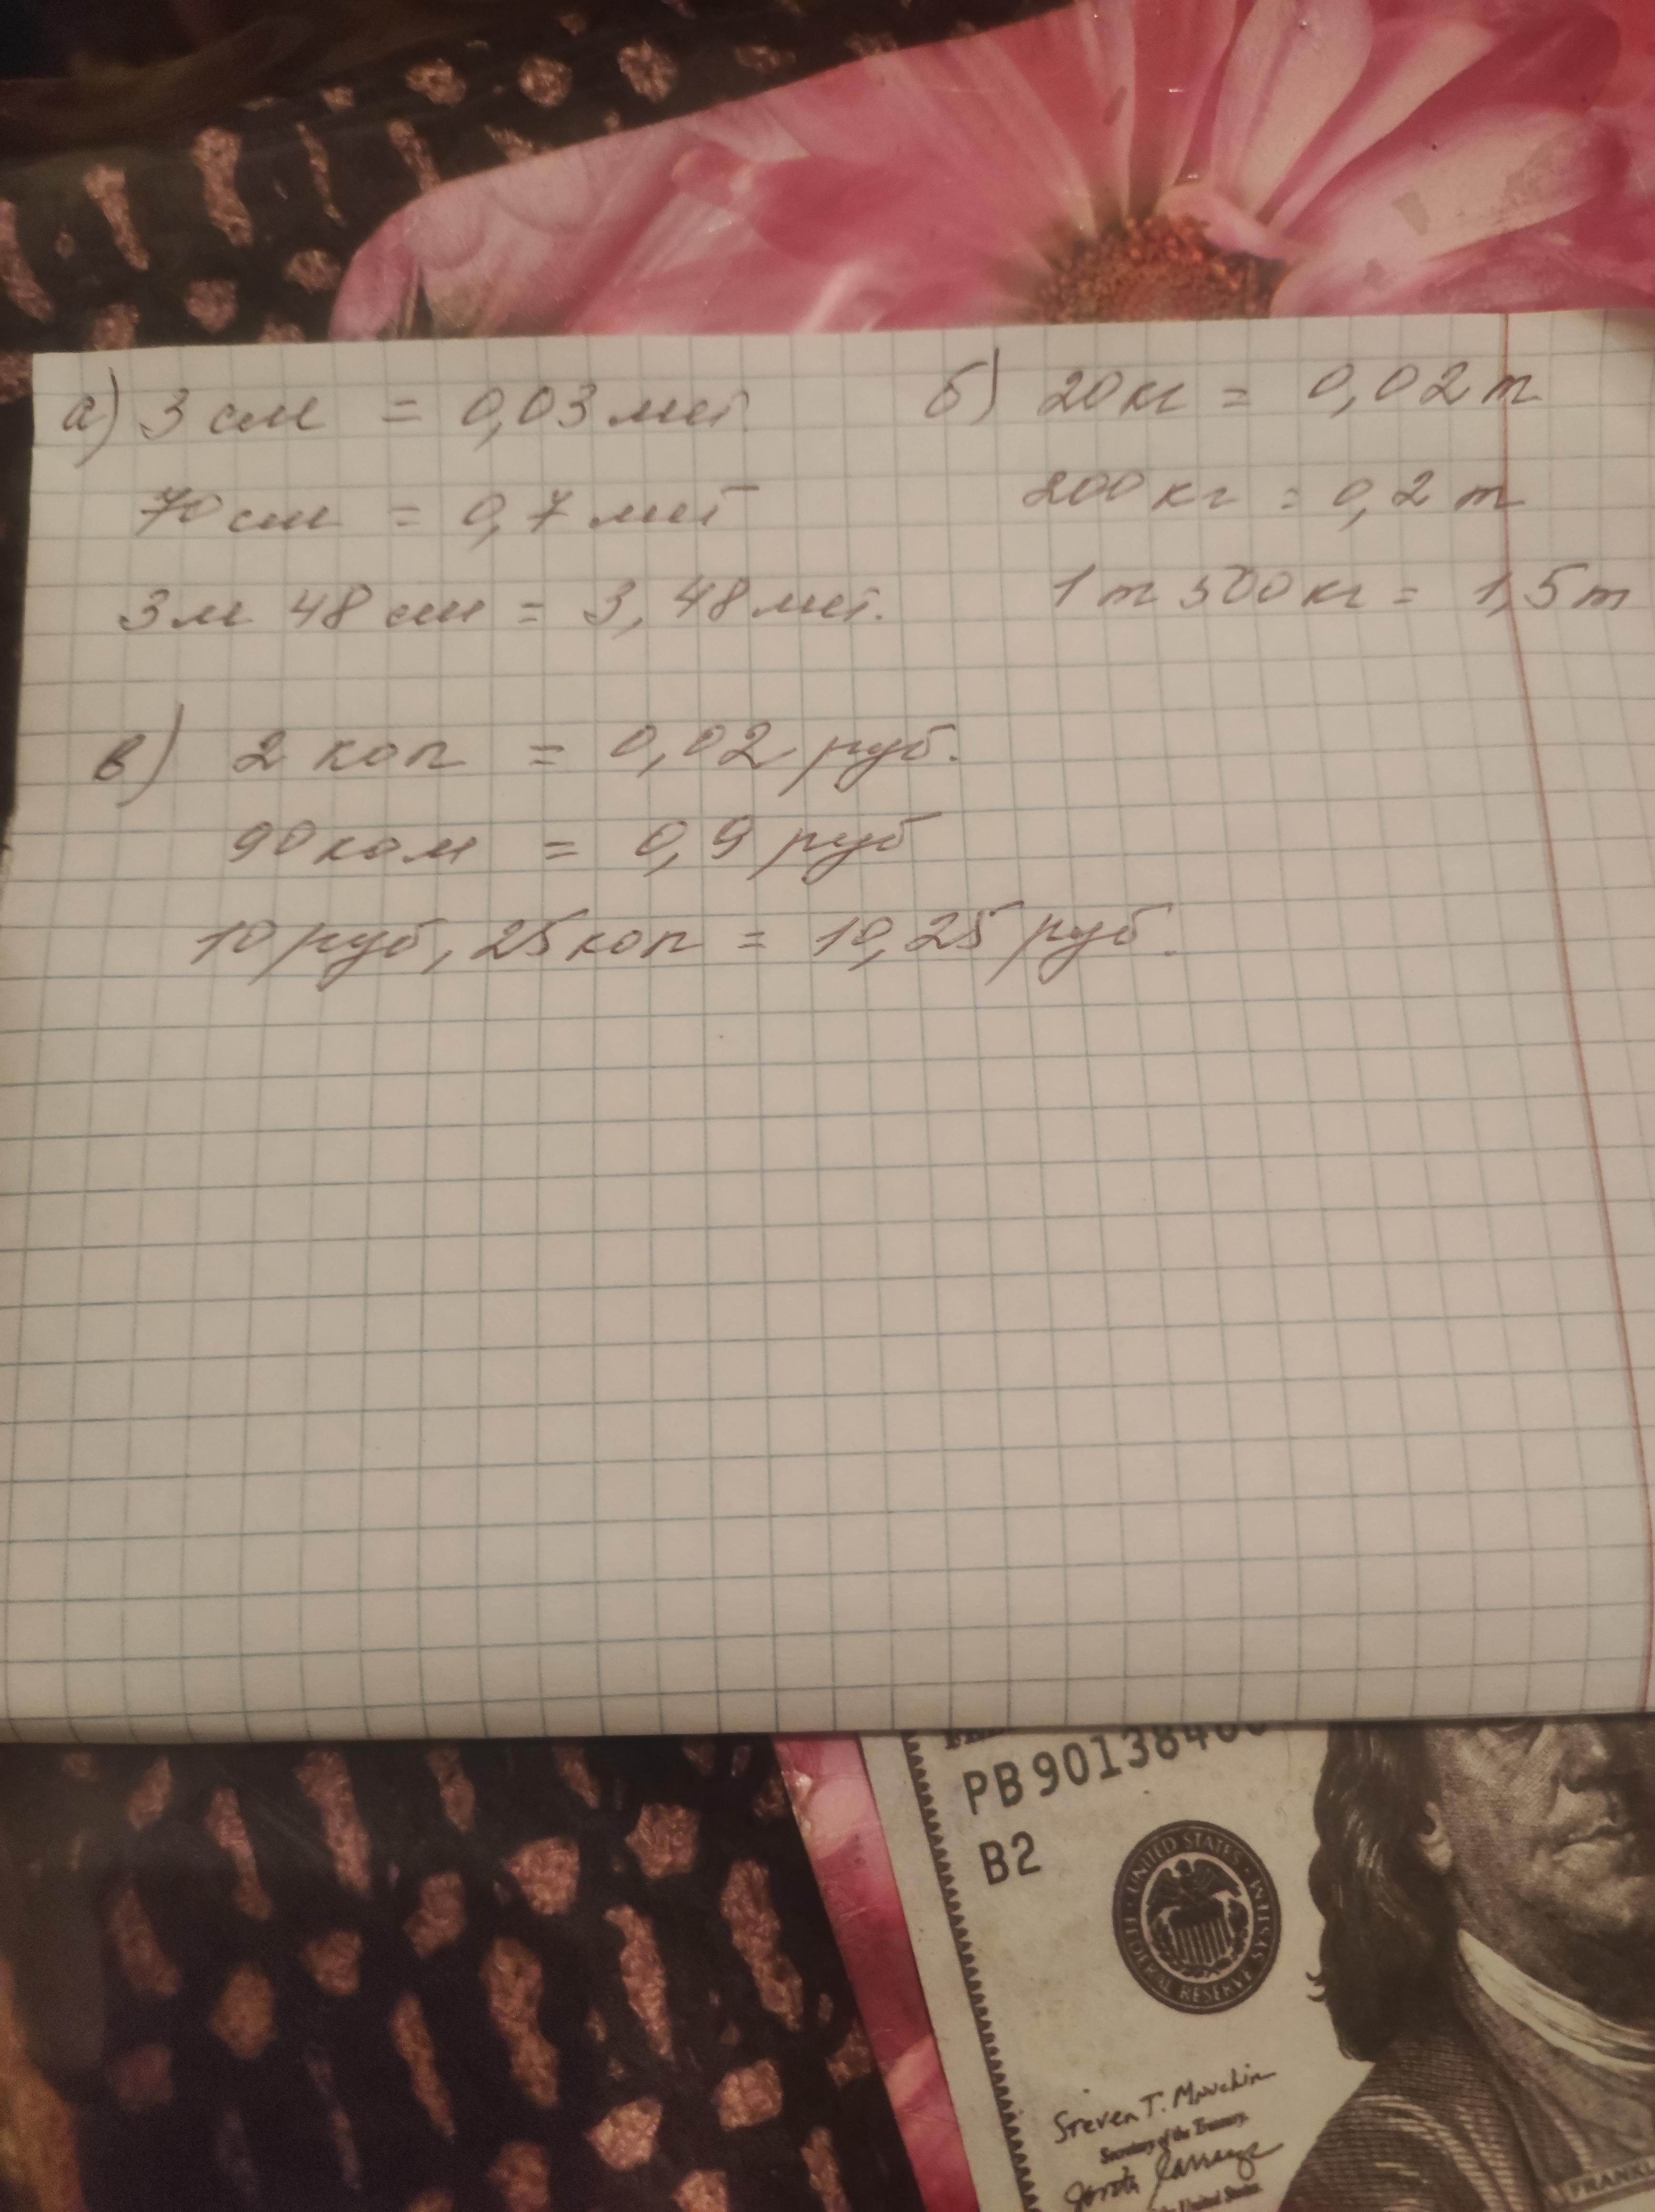 а) 3 см = 0,03 мет.
70 см = 0,7 мет
3 м 48 см = 3,48 мет.
б) 20 кг = 0,02 т
200 кг = 0,2 т
1 т 500 кг = 1,5 т
в) 2 коп = 0,02 руб.
90 коп = 0,9 руб
10 руб, 25 коп = 10,25 руб.
PB 9013846
B2
UNITED STATES
FEDERAL RESERVE SYSTEM
Steven T. Mnuchin
Secretary of the Treasury.
the United States.
FRANKL